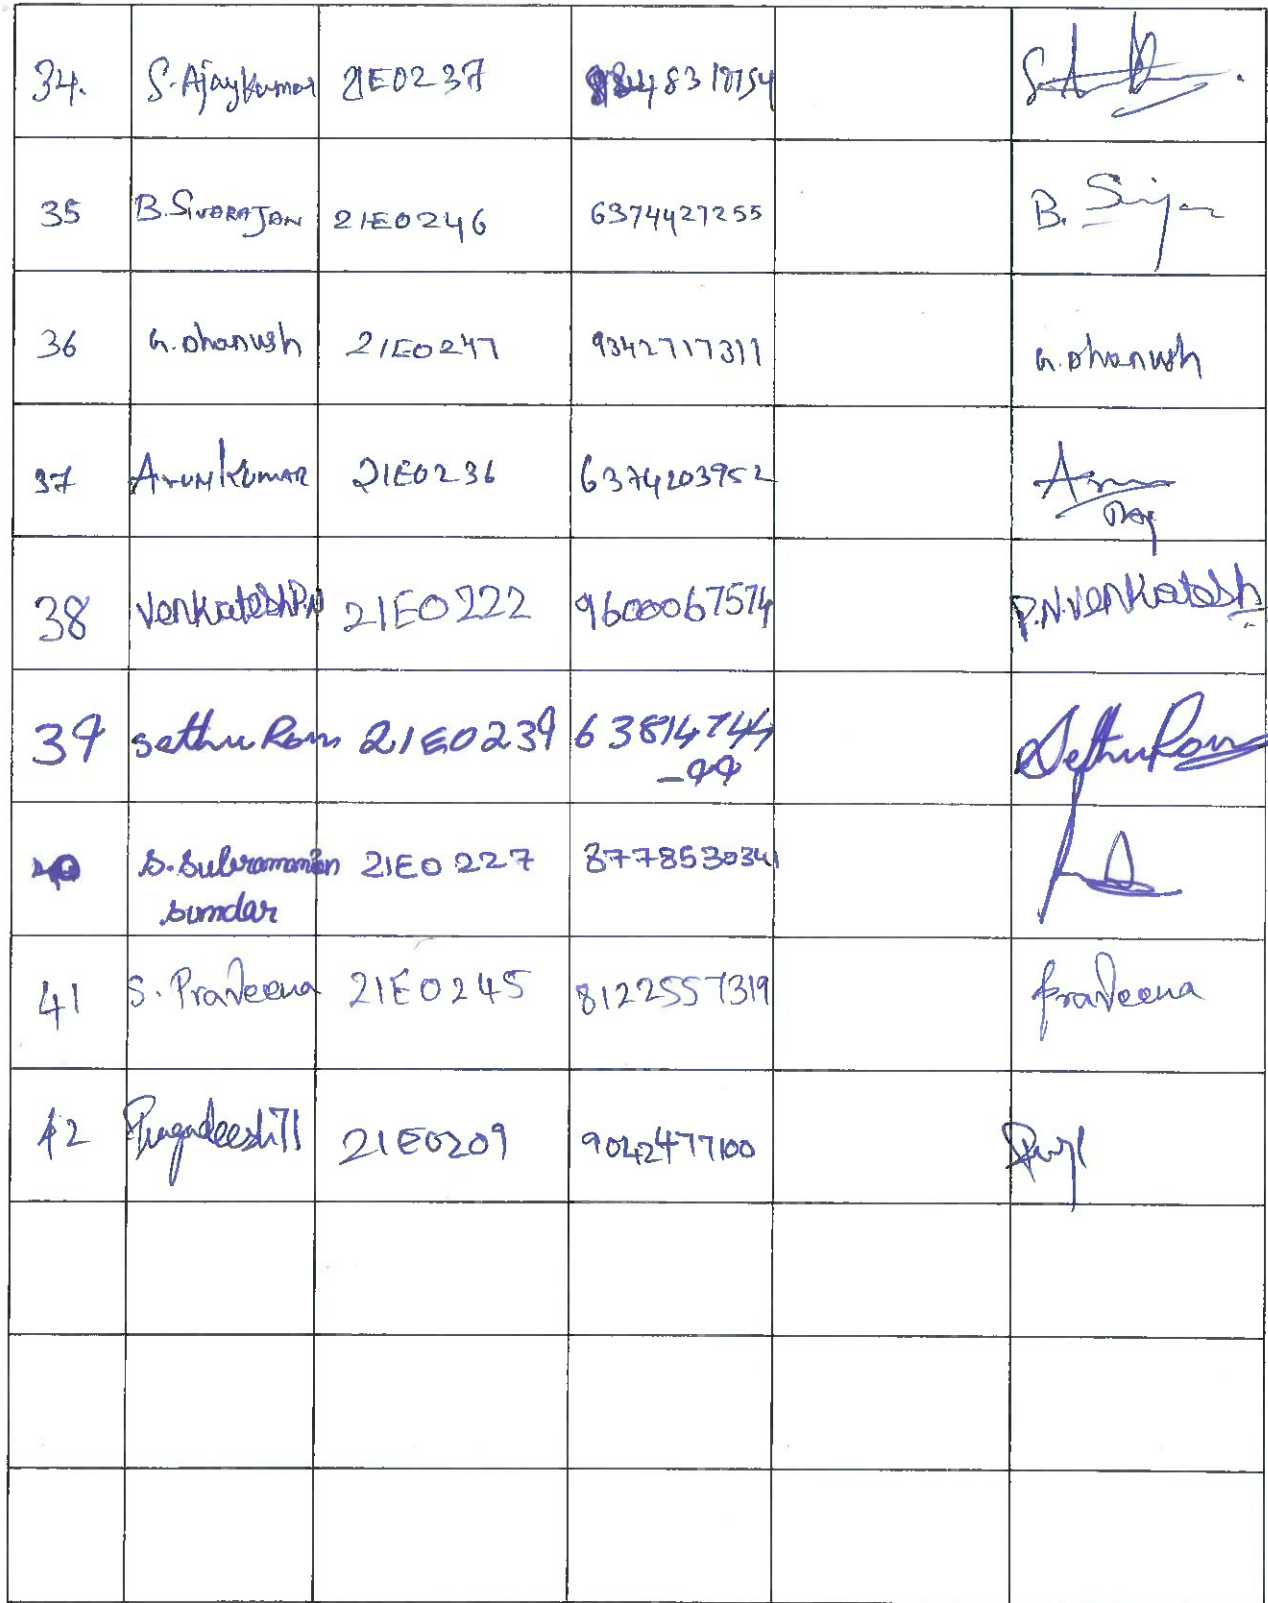 34. S. Ajaykumar 21E0237
35 B. SIVARAJAN 21E0246 6374427255 B.
36 G. Dhanush 21E0247 9342717311 G. Dhanush
37 Arunkumar 21E0236 6374203952
38 Venkatesh P.N 21E0222 9600067574 P.N. Venkatesh
39 Sethu Ram 21E0239 63814744 Sethu Ram
-99
40 S. Subramanian 21E0227 8778530341
sundar
41 S. Praveena 21E0245 8122557319 Praveena
42 21E0209 9042477100